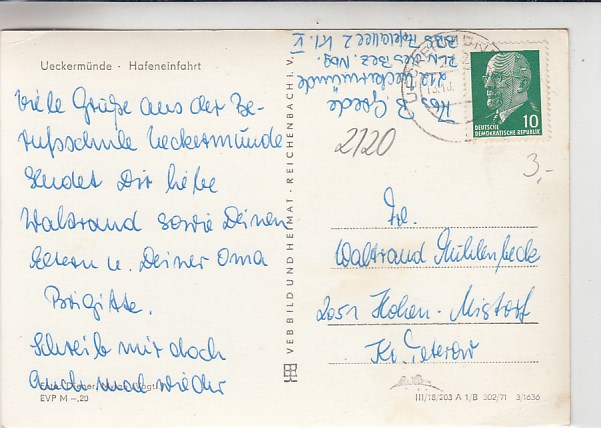 Ueckermünde · Hafeneinfahrt
Viele Grüße aus der Be-
rufsschule Ueckermünde
sendet Dir liebe
Waltraud sowie Deinen
Eltern u. Deiner Oma
Brigitte.
Schreib mir doch
auch mal wieder
EVP M –,20
VEB BILD UND HEIMAT · REICHENBACH I. V.
Abs B Goede
212 Ueckermünde
des Bez. Nbg.
2120
10
DEUTSCHE
DEMOKRATISCHE REPUBLIK
3,-
Frl.
Waltraud Mühlenbeck
2051 Hohen-Mistorf
Kr. Teterow
III/18/203 A 1/B 302/71 3/1636